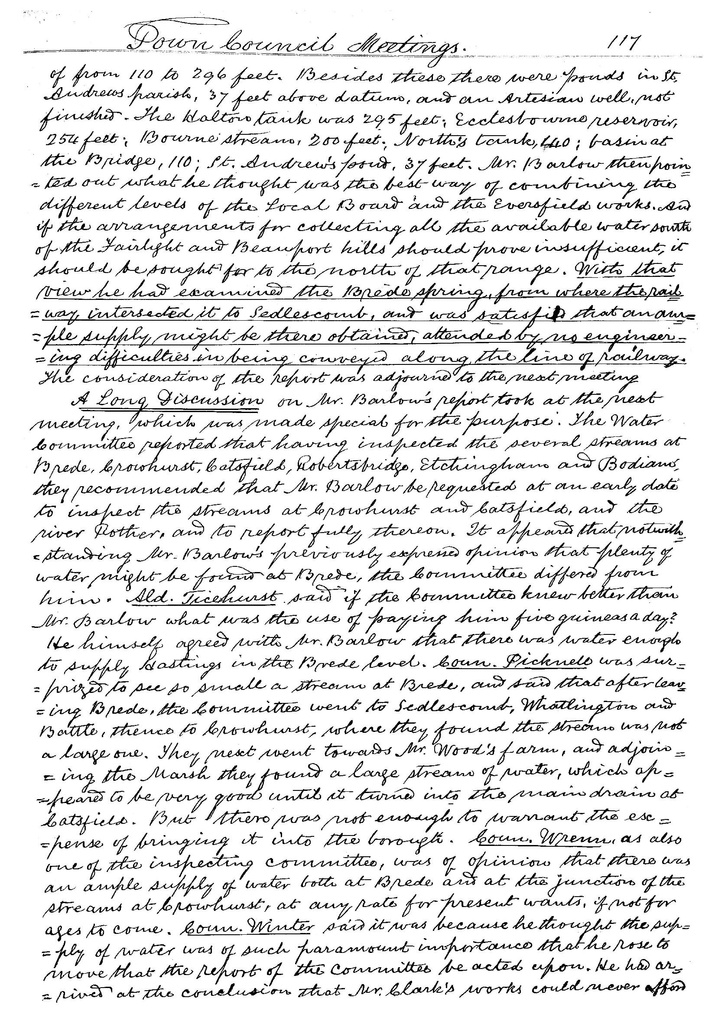 Town Council Meetings. 117
of from 110 to 296 feet. Besides these there were ponds in St.
Andrews parish, 37 feet above datum, and an Artesian well, not
finished. The Halton tank was 295 feet; Ecclesbourne reservoir,
254 feet; Bourne stream, 200 feet; North's tank, 140; basin at
the Bridge, 110; St. Andrew's pond, 37 feet. Mr. Barlow then poin
=ted out what he thought was the best way of combining the
different levels of the Local Board and the Eversfield works. And
if the arrangements for collecting all the available water south
of the Fairlight and Beauport hills should prove insufficient, it
should be sought for to the north of that range. With that
view he had examined the Brede spring, from where the rail
=way intersected it to Sedlescomb, and was satisfied that an am=
=ple supply might be there obtained, attended by no engineer=
=ing difficulties in being conveyed along the line of railway.
The consideration of the report was adjourned to the next meeting
A Long Discussion on Mr. Barlow's report took at the next
meeting, which was made special for the purpose. The Water
Committee reported that having inspected the several streams at
Brede, Crowhurst, Catsfield, Robertsbridge, Etchingham and Bodiam,
they recommended that Mr. Barlow be requested at an early date
to inspect the streams at Crowhurst and Catsfield, and the
river Rother, and to report fully thereon. It appeared that notwith
=standing Mr. Barlow's previously expressed opinion that plenty of
water might be found at Brede, the Committee differed from
him. Ald. Ticehurst said if the Committee knew better than
Mr. Barlow what was the use of paying him five guineas a day?
He himself agreed with Mr. Barlow that there was water enough
to supply Hastings in the Brede level. Coun. Picknell was sur=
=prized to see so small a stream at Brede, and said that after leav
=ing Brede, the Committee went to Sedlescomb, Whatlington and
Battle, thence to Crowhurst, where they found the stream was not
a large one. They next went towards Mr. Wood's farm, and adjoin=
=ing the Marsh they found a large stream of water, which ap=
=peared to be very good until it turned into the main drain at
Catsfield. But there was not enough to warrant the ex=
=pense of bringing it into the borough. Coun. Wrenn, as also
one of the inspecting committee, was of opinion that there was
an ample supply of water both at Brede and at the junction of the
streams at Crowhurst, at any rate for present wants, if not for
ages to come. Coun. Winter said it was because he thought the sup=
=ply of water was of such paramount importance that he rose to
move that the report of the committee be acted upon. He had ar=
=rived at the conclusion that Mr. Clark's works could never afford